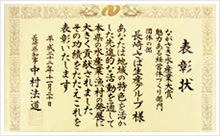 表彰状
ながさき水産業大賞
魅力ある経営体づくり部門
団体の部
長崎さば生産グループ 様
あなたは地域の特色を活か
した先進的な活動を通して
本県の水産業・漁村の発展に
大きく貢献されました
その功績をたたえこれを
表彰いたします
平成二十八年十一月二十日
長崎県知事 中村法道